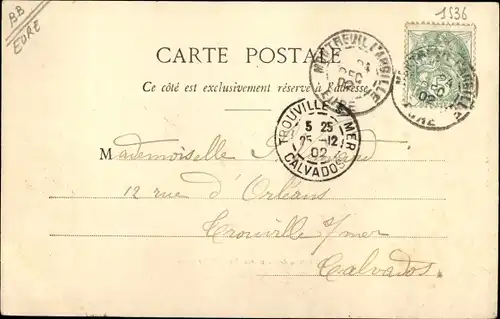 BB
EURE
1536
CARTE POSTALE
Ce côté est exclusivement réservé à l'adresse
MONTREUIL-L'ARGILLÉ
24
DEC
02
EURE
MONTREUIL-L'ARGILLÉ
DEC
02
EURE
TROUVILLE S/ MER
5 25
25 -12
02
CALVADOS
Mademoiselle
12 rue d'Orléans
Trouville s/mer
Calvados.